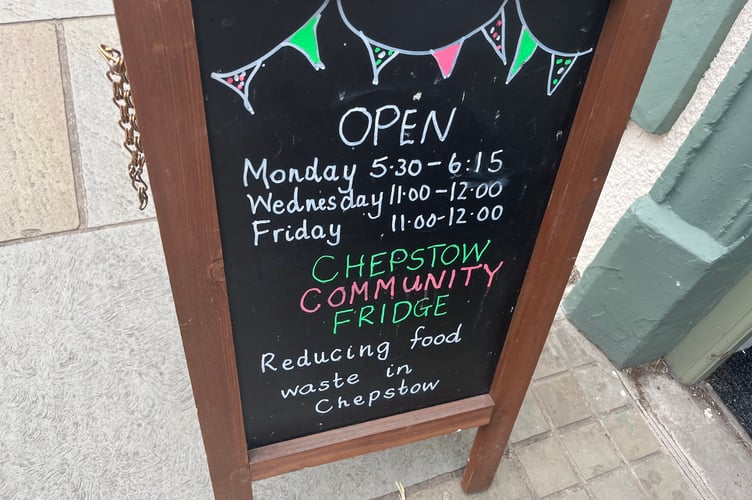 OPEN
Monday 5.30 - 6:15
Wednesday 11.00 - 12.00
Friday 11.00 - 12.00
CHEPSTOW
COMMUNITY
FRIDGE
Reducing food
waste in
Chepstow